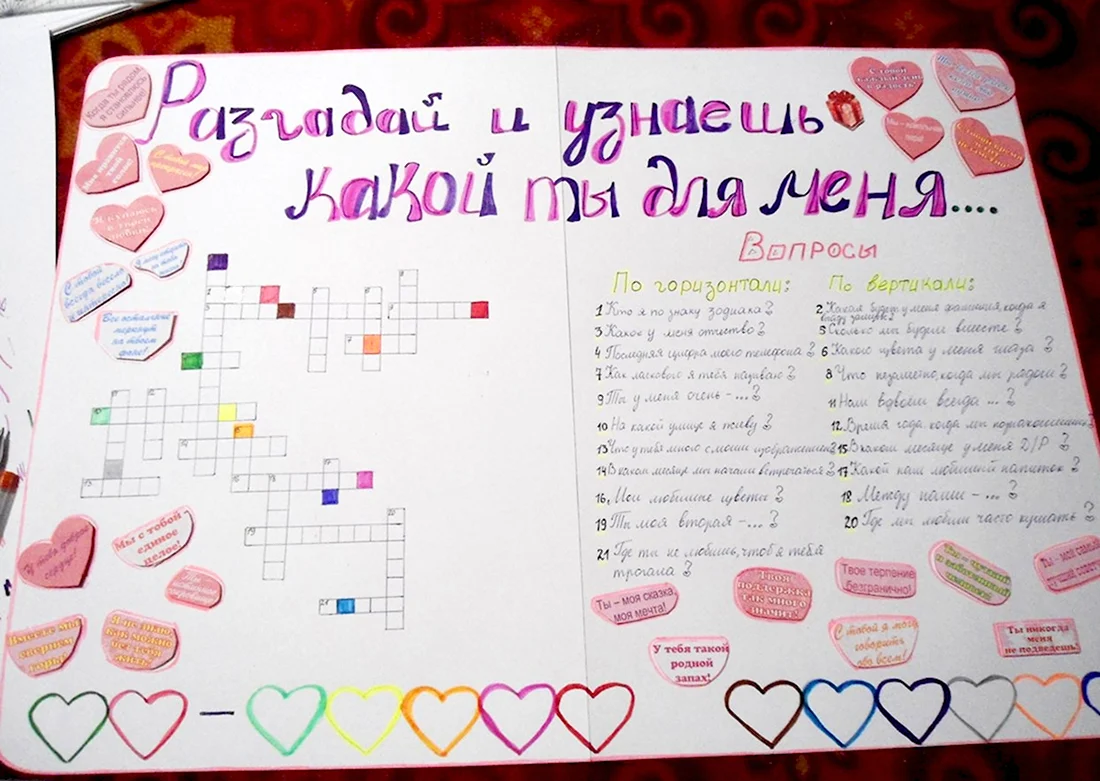 Разгадай и узнаешь
какой ты для меня....
Вопросы
По горизонтали:
1 Кто я по знаку зодиака?
3 Какое у меня отчество?
4 Последняя цифра моего телефона?
7 Как ласково я тебя называю?
9 Ты у меня очень - ...?
10 На какой улице я живу?
13 Что у тебя много с моим изображением?
14 В каком месяце мы начали встречаться?
16, Мои любимые цветы?
19 Ты моя вторая - ...?
21 Где ты не любишь, чтоб я тебя
трогала?
По вертикали:
2 Какая будет у меня фамилия, когда я
выйду замуж?
5 Сколько мы будем вместе?
6 Какого цвета у меня глаза?
8 Что незаметно, когда мы рядом?
11 Нам вдвоем всегда ...?
12 Время года, когда мы познакомились?
15 В каком месяце у меня Д/Р?
17 Какой наш любимый напиток?
18 Между нами - ...?
20 Где мы любим часто кушать?
Когда ты рядом,
я становлюсь
сильнее!
Мне нравится
твой
голос!
С тобой
всегда весело
и интересно!
Все остальные
меркнут
на твоем
фоне!
У тебя доброе
сердце!
Мы с тобой -
единое
целое!
Вместе мы
свернем
горы!
Я не знаю,
как можно
без тебя
жить!
Ты – моя сказка,
моя мечта!
Твоя
поддержка
так много
значит!
Твое терпение
безгранично!
Ты – чуткий
и заботливый
человек!
У тебя такой
родной
запах!
С тобой я могу
говорить
обо всем!
Ты никогда
меня
не подведешь!